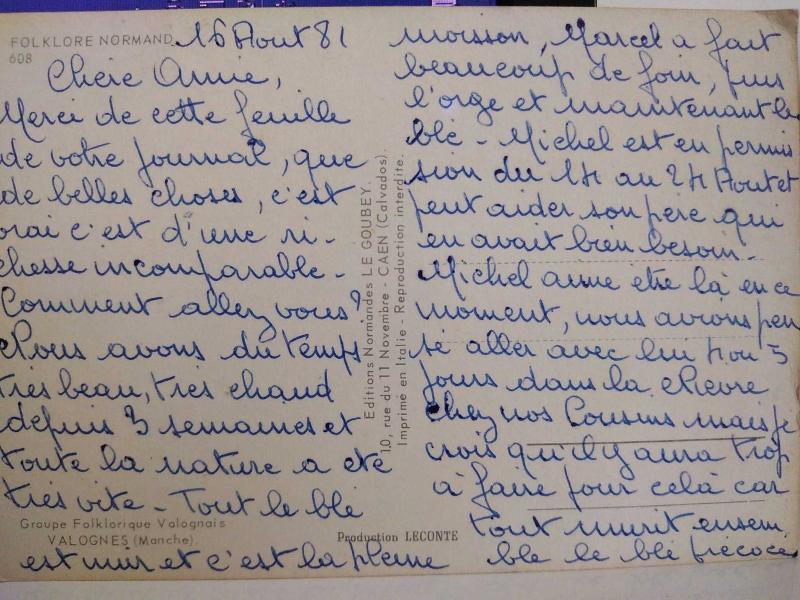 FOLKLORE NORMAND
608
16 Aout 81
Chère Annie,
Merci de cette feuille
de votre journal, que
de belles choses, c'est
vrai c'est d'une ri-
chesse incomparable -
Comment allez vous?
Nous avons du temps
très beau, très chaud
depuis 3 semaines et
toute la nature a été
très vite - Tout le blé
est mûr et c'est la pleine
moisson, Marcel a fait
beaucoup de foin, puis
l'orge et maintenant le
blé - Michel est en permis
sion du 14 au 24 Aout et
peut aider son père qui
en avait bien besoin -
Michel aime être là en ce
moment, nous avions pen
sé aller avec lui 4 ou 5
jours dans la Nièvre
chez nos Cousins mais je
crois qu'il y aura trop
à faire pour celà car
tout murit ensem
ble le blé précoce
Editions Normandes LE GOUBEY.
10, rue du 11 Novembre - CAEN (Calvados).
Imprimé en Italie - Reproduction interdite.
Groupe Folklorique Valognais
VALOGNES (Manche).
Production LECONTE